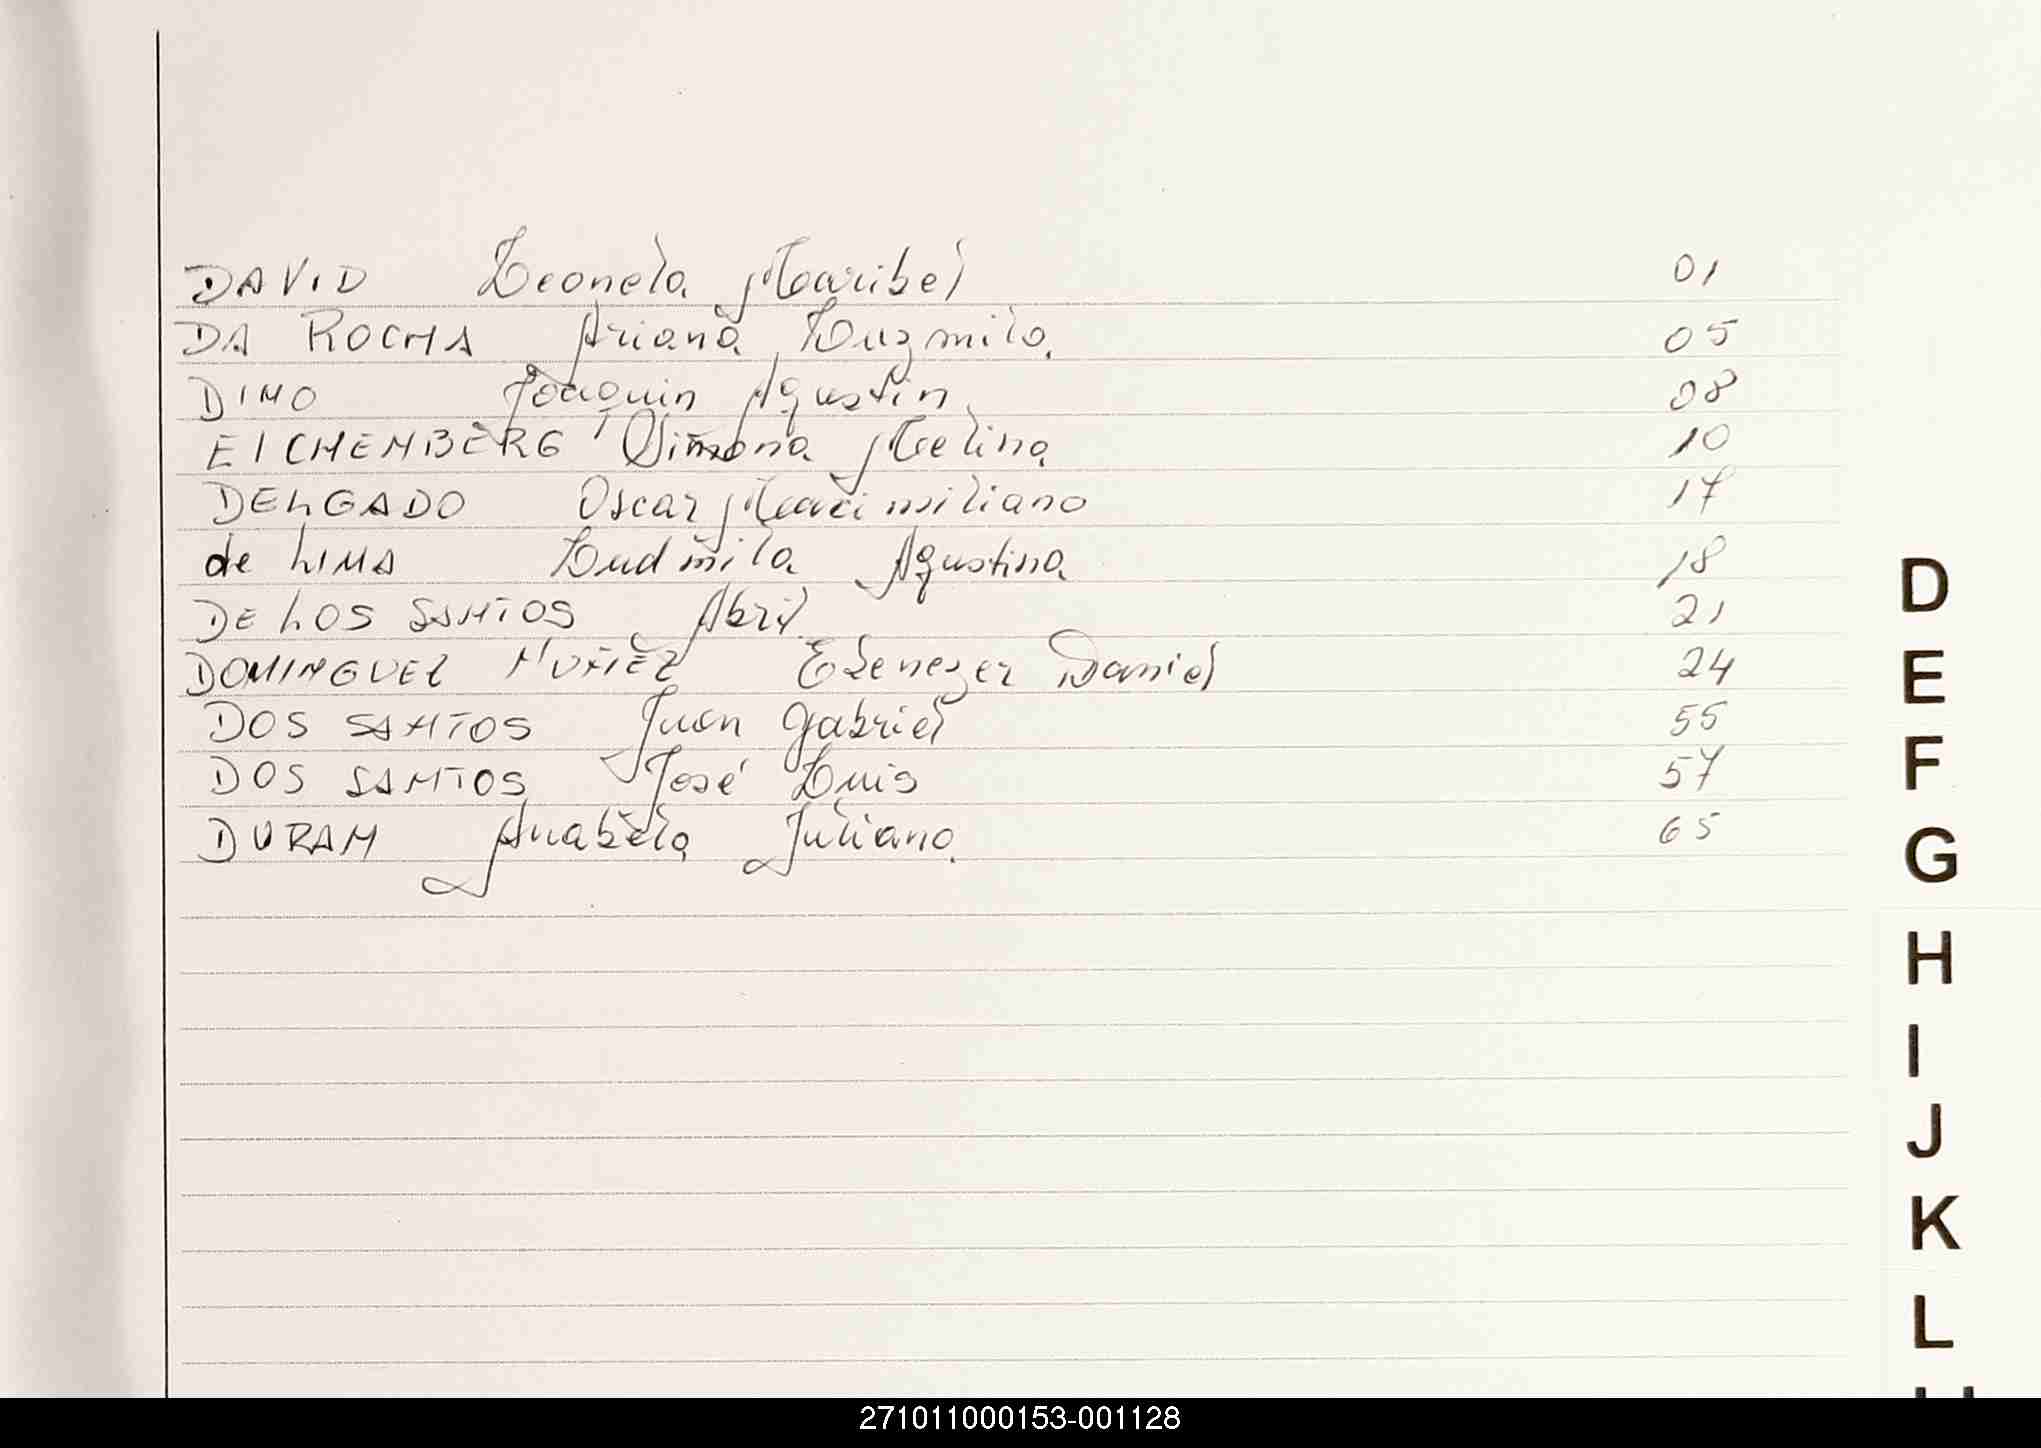 DAVID Leonela Maribel 01
DA ROCHA Ariana Luzmila 05
DINO Joaquin Agustin 08
EICHENBERG Simona Melina 10
DELGADO Oscar Maximiliano 17
de LIMA Ludmila Agustina 18
DE LOS SANTOS Abril 21
DOMINGUEZ NUÑEZ Ebenezer Daniel 24
DOS SANTOS Juan Gabriel 55
DOS SANTOS José Luis 57
DURAN Anabela Juliana 65
D
E
F
G
H
I
J
K
L
271011000153-001128